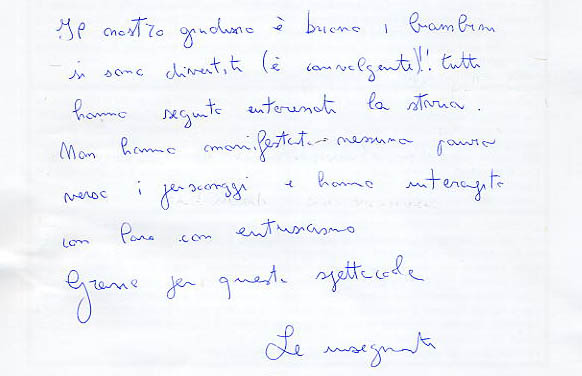 Il nostro giudizio è buono i bambini
si sono divertiti (è coinvolgente)!! tutti
hanno seguito interessati la storia.
Non hanno manifestato nessuna paura
verso i personaggi e hanno interagito
con loro con entusiasmo
Grazie per questo spettacolo
Le insegnanti